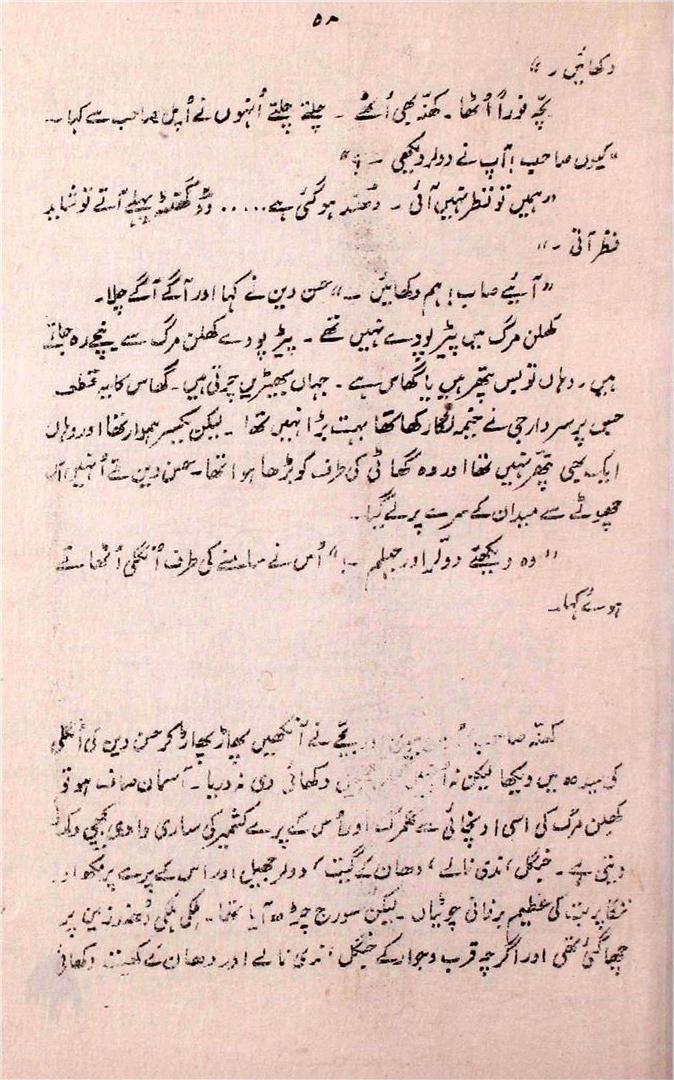 ۵۸
دکھائیں ۔"
بچّہ فوراً اُٹھا۔ کھنّہ بھی اُٹھے ۔ چلتے چلتے اُنہوں نے اُپل صاحب سے کہا ۔
"کیوں صاحب! آپ نے دولر دیکھی ۔ ؟"
"ہمیں تو نظر نہیں آئی ۔ دُھند ہو گئی ہے..... دو گھنٹہ پہلے آتے تو شاید
نظر آتی ۔"
"آیئے صاب! ہم دکھائیں ۔" حسن دین نے کہا اور آگے آگے چلا۔
کھلن مرگ میں پیڑ پودے نہیں تھے ۔ پیڑ پودے کھلن مرگ سے نیچے رہ جاتے
ہیں۔ وہاں تو بس پتھر ہیں یا گھاس ہے ۔ جہاں بھیڑیں چرتی ہیں۔ گھاس کا یہ قطعہ
جس پر سردار جی نے خیمہ لگا رکھا تھا بہت بڑا نہیں تھا ۔ لیکن یکسر ہموار تھا اور وہاں
ایک بھی پتھر نہیں تھا اور وہ گھاٹی کی طرف کو بڑھا ہوا تھا۔ حسن دین نے اُنہیں اس
چھوٹے سے میدان کے سرے پر لے گیا۔
"وہ دیکھئے دولر اور جہلم ۔!" اُس نے سامنے کی طرف اُنگلی اُٹھاتے
ہوئے کہا۔
کھنّہ صاحب بیوی اور بچّے نے آنکھیں پھاڑ پھاڑ کر حسن دین کی اُنگلی
کی سیدھ میں دیکھا لیکن نہ اُنہیں دکھائی دی نہ دریا۔ آسمان صاف ہو تو
کھلن مرگ کی اسی اونچائی سے گلمرگ اور اُس کے پرے کشمیر کی ساری وادی بچھی دکھائی
دیتی ہے۔ جنگل، ندی نالے، دھان کے کھیت، دولر جھیل اور اس کے پرے ہر مکھ اور
ننگا پربت کی عظیم برفانی چوٹیاں ۔ لیکن سورج چڑھ آیا تھا۔ ہلکی ہلکی دُھند زمین پر
چھا گئی تھی اور اگرچہ قرب و جوار کے جنگل، ندی نالے اور دھان کے کھیت دکھائی